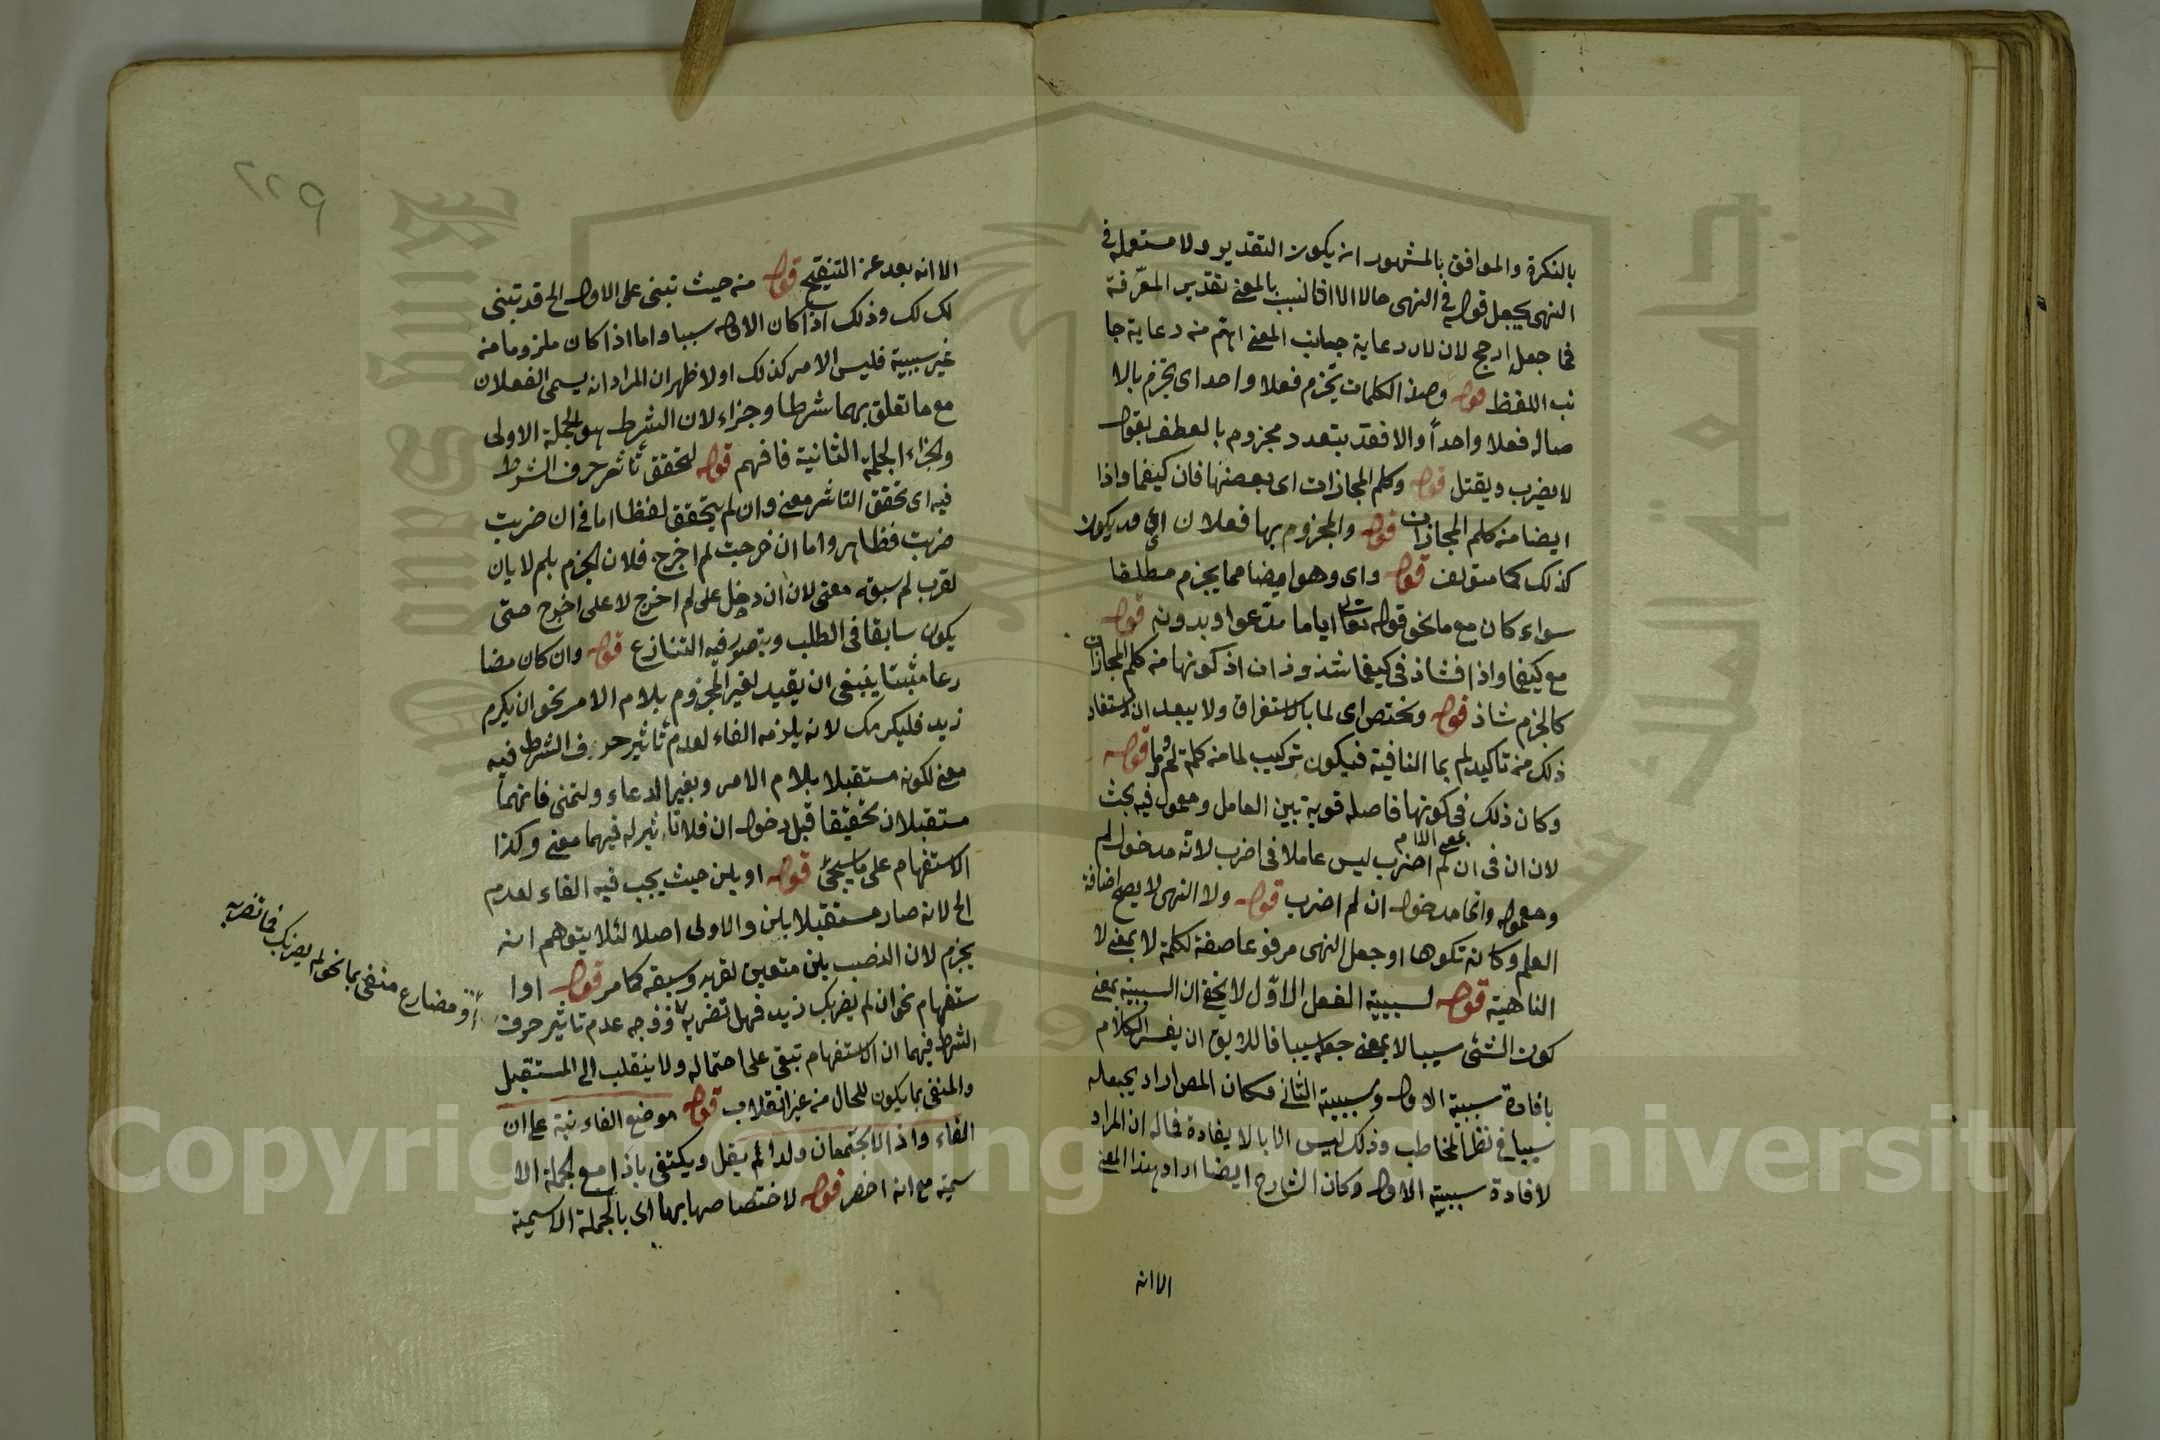 بالنكرة والموافق بالمشهور ان يكون التقدير ولا مستعملة في
النهى بجعل قوله في النهى حالا الا ان الانسب بالمعنى تقدير المعرفة
فما جعل ارجح لان لان رعاية جانب المعنى اهتم من رعاية جا
نب اللفظ قوله وهذه الكلمات تجزم فعلا واحدا اى تجزم بالا
صاله فعلا واحداً والا فقد يتعدد مجزوم بالعطف بقوله
لا يضرب ويقتل قوله وكلم المجازات اى بعضها فان كيفما واذا
ايضا من كلم المجازات قوله والمجزوم بها فعلان اى قد يكون
كذلك كما ستعرف قوله واى وهو ايضا مما يجزم مطلقا
سواء كان مع ما نحو قوله تعالى اياما تدعوا وبدونه قوله
مع كيفما واذا فشاذ في كيفما شذوذان اذ كونها من كلم المجازات
كالجزم شاذ قوله وتختص اى لما بالاستغراق ولا يبعد ان استفاد
ذلك من تاكيد لم بما النافية فيكون تركيب لما من كلمة لم وما قوله
وكان ذلك في كونها فاصله قوية بين العامل ومعموله فيه بحث
لان ان في ان لم اضرب ليس عاملا في اضرب لانه مدخول لم
ومعموله وانما مدخوله ان لم اضرب قوله ولا النهى لا يصح اضافة
العلم وكانه نكرها او جعل النهى مرفوعا صفة لكلمة لا بمعنى لا
الناهية قوله لسببية الفعل الاوّل لا يخفى ان السببية بمعنى
كون الشئ سببا لا بمعنى جعله سببا فاللايق ان يفسر الكلام
بافادة سببية الاول وسببية الثانى فكان المص اراد بجعله
سببا في نظر المخاطب وذلك ليس الا بالافادة فماله ان المراد
لافادة سببية الاول وكان الشارح ايضا اراد بهذا المعنى
الا انه
٢٢٩
الا انه بعد عن التنقيح قوله من حيث تبنى على الاول الخ قد تبنى
لك لك وذلك اذا كان الاول سببا واما اذا كان ملزوما من
غير سببية فليس الامر كذلك اولا ظهر ان المراد ان يسمى الفعلان
مع ما تعلق بهما شرطا وجزاء لان الشرط هو الجملة الاولى
والجزاء الجملة الثانية فافهم قوله لتحقق تأثير حرف الشرط
فيه اى تحقق التاثير معنى وان لم يتحقق لفظا اما في ان ضربت
ضربت فظاهر واما ان خرجت لم اخرج فلان الجزم بلم لا بان
لقرب لم سبقه معنى لان ان دخل على لم اخرج لا على اخرج حتى
يكون سابقا في الطلب ويتصور فيه التنازع قوله وان كان مضا
رعا مثبتا ينبغى ان يقيد لغير المجزوم بلام الامر نحو ان يكرم
زيد فليكرمك لانه يلزمه الفاء لعدم تأثير حرف الشرط فيه
معنى لكونه مستقبلا بلام الامر وبغير الدعاء والتمنى فانهما
مستقبلان تحقيقا قبل دخول ان فلا تاثير له فيهما معنى وكذا
الاستفهام على ما سيجئ قوله او بلن حيث يجب فيه الفاء لعدم
الخ لانه صار مستقبلا بلن والاولى اصلا لئلا يتوهم انه
يجزم لان النصب بلن متعين لقربه وسبقه كما مر قوله او ا
ستفهام نحو ان لم يضربك زيد فهل تضربه فوجه عدم تاثير حرف
الشرط فيهما ان الاستفهام تبقى على احتماله ولا ينقلب الى المستقبل
والمنفى بما يكون للحال من غير انقلاب قوله موضع الفاء نبه على ان
الفاء واذا لا يجتمعان ولذا لم يقل ويكتفى باذا مع الجملة الا
سمية مع انه اخصر قوله لاختصاصها بها اى بالجملة الاسمية
او مضارع منفى بما نحو لم يضربك فما تضربه
Copyright © King Saud University